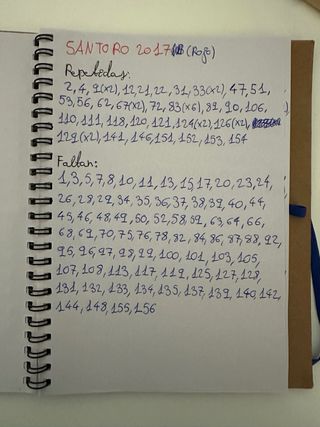 SANTORO 2017/18 (Rojo)
Repetidas:
2, 4, 9(x2), 12, 21, 22, 31, 33(x2), 47, 51,
53, 56, 62, 67(x2), 72, 83(x6), 89, 90, 106,
110, 111, 118, 120, 121, 124(x2), 126(x2),
129(x2), 141, 146, 151, 152, 153, 154
Faltan:
1, 3, 5, 7, 8, 10, 11, 13, 15, 17, 20, 23, 24,
26, 28, 29, 34, 35, 36, 37, 38, 39, 40, 44,
45, 46, 48, 49, 50, 52, 58, 59, 63, 64, 66,
68, 69, 70, 75, 76, 78, 82, 84, 86, 87, 88, 92,
95, 96, 97, 98, 99, 100, 101, 103, 105,
107, 108, 113, 117, 119, 125, 127, 128,
131, 132, 133, 134, 135, 137, 139, 140, 142,
144, 148, 155, 156